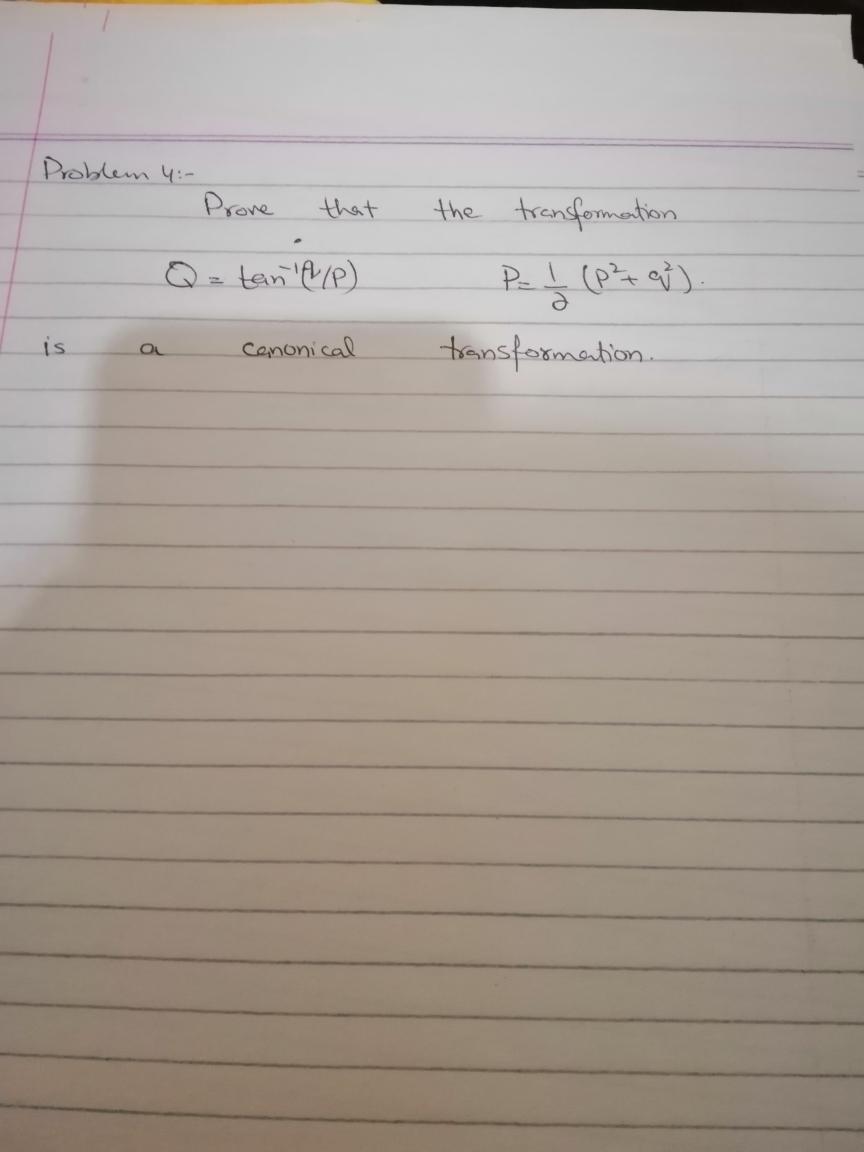 Problem 4:-
Prove that the transformation
Q = tan⁻¹(q/p) P = 1/2 (p² + q²).
is a canonical transformation.